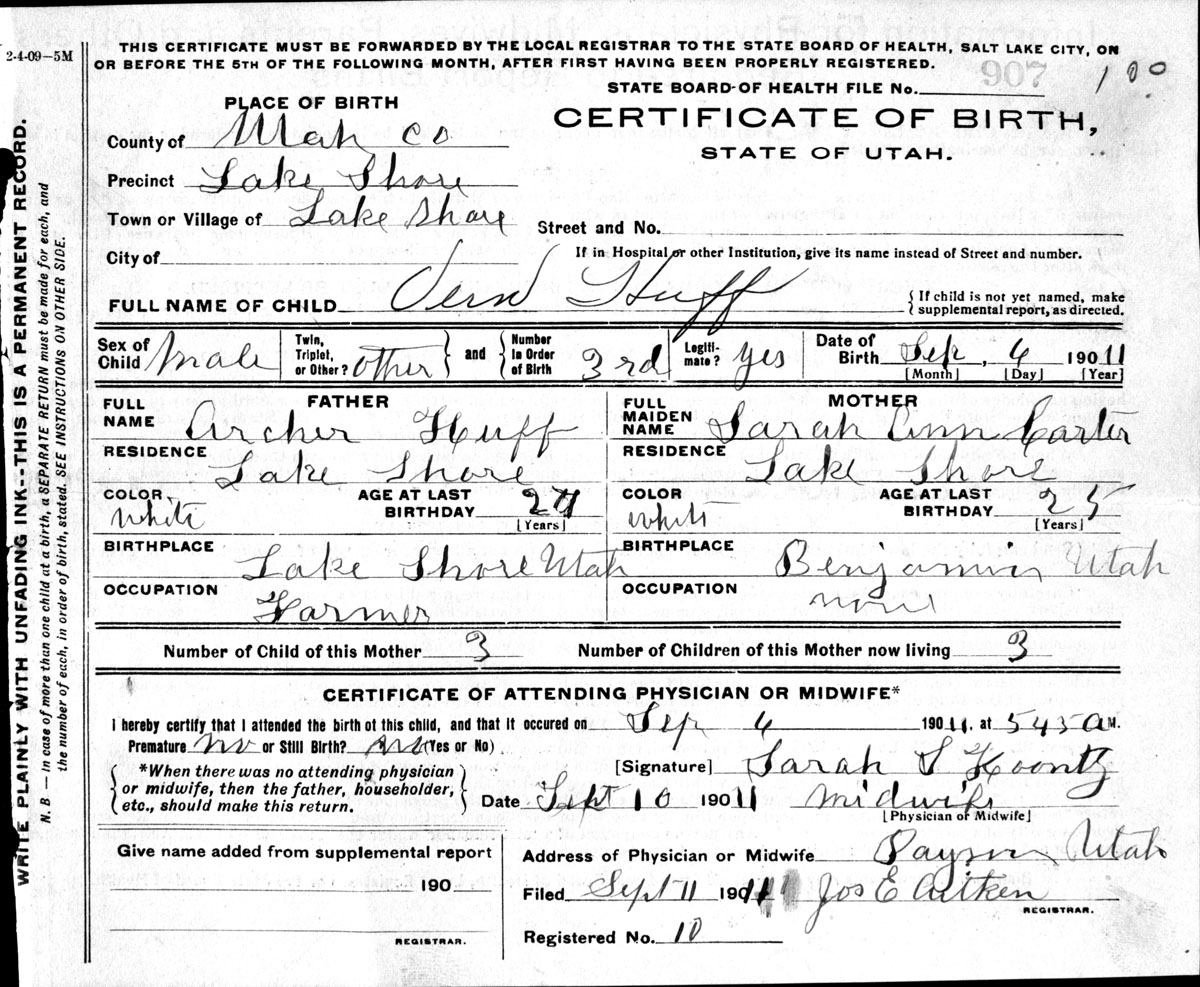 2-4-09—5M
THIS CERTIFICATE MUST BE FORWARDED BY THE LOCAL REGISTRAR TO THE STATE BOARD OF HEALTH, SALT LAKE CITY, ON
OR BEFORE THE 5TH OF THE FOLLOWING MONTH, AFTER FIRST HAVING BEEN PROPERLY REGISTERED.
907
100
STATE BOARD OF HEALTH FILE No.
PLACE OF BIRTH
CERTIFICATE OF BIRTH,
STATE OF UTAH.
County of Utah Co
Precinct Lake Shore
Town or Village of Lake Shore
Street and No.
City of
If in Hospital or other Institution, give its name instead of Street and number.
FULL NAME OF CHILD Vern Huff
{ If child is not yet named, make
supplemental report, as directed.
Sex of Child Male
Twin, Triplet, or Other? other } and { Number in Order of Birth 3rd
Legiti-mate? yes
Date of Birth Sep, 4 190 11
[Month] [Day] [Year]
FATHER
FULL NAME Archer Huff
RESIDENCE Lake Shore
COLOR white
AGE AT LAST BIRTHDAY 27
[Years]
BIRTHPLACE Lake Shore Utah
OCCUPATION Farmer
MOTHER
FULL MAIDEN NAME Sarah Ann Carter
RESIDENCE Lake Shore
COLOR white
AGE AT LAST BIRTHDAY 25
[Years]
BIRTHPLACE Benjamin Utah
OCCUPATION none
Number of Child of this Mother 3 Number of Children of this Mother now living 3
CERTIFICATE OF ATTENDING PHYSICIAN OR MIDWIFE*
I hereby certify that I attended the birth of this child, and that it occured on Sep 4 190 11. at 5 45 a M.
Premature no or Still Birth? no (Yes or No)
[Signature] Sarah S Koontz
{ *When there was no attending physician
or midwife, then the father, householder,
etc., should make this return. }
Date Sept 10 190 11 midwife
[Physician or Midwife]
Give name added from supplemental report
190
REGISTRAR.
Address of Physician or Midwife Payson Utah
Filed Sept 11 190 11 Jos E Aitken
REGISTRAR.
Registered No. 10
WRITE PLAINLY WITH UNFADING INK--THIS IS A PERMANENT RECORD.
N. B. — In case of more than one child at a birth, a SEPARATE RETURN must be made for each, and
the number of each, in order of birth, stated. SEE INSTRUCTIONS ON OTHER SIDE.